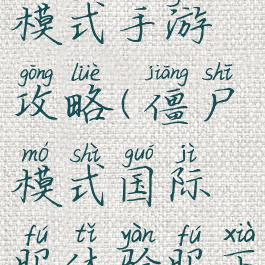 模式手游
gōng lüè jiāng shī
攻略(僵尸
mó shì guó jì
模式国际
fú tǐ yàn fú xià
服体验服下